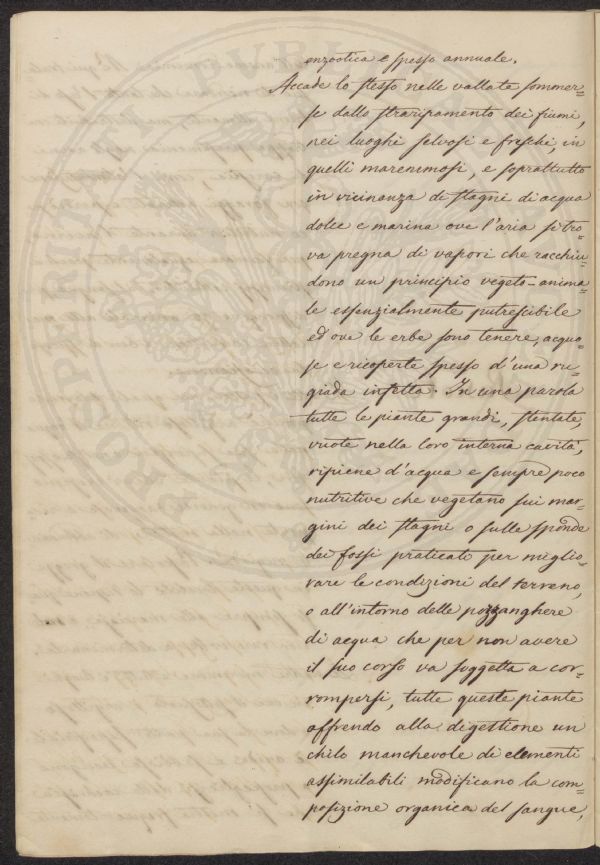 enzootica e spesso annuale.
Accade lo stesso nelle vallate sommer=
se dallo straripamento dei fiumi,
nei luoghi selvosi e freschi, in
quelli maremmosi, e soprattutto
in vicinanza di stagni di acqua
dolce e marina ove l'aria si tro=
va pregna di vapori che racchiu=
dono un principio vegeto-anima=
le essenzialmente putrescibile
ed ove le erbe sono tenere, acquo=
se e ricoperte spesso d'una ru=
giada infetta. In una parola
tutte le piante grandi, stentate,
vuote nella loro interna cavità,
ripiene d'acqua e sempre poco
nutritive che vegetano sui mar=
gini dei stagni o sulle sponde
dei fossi praticati per miglio=
rare le condizioni del terreno,
o all'intorno delle pozzanghere
di acqua che per non avere
il suo corso va soggetta a cor=
rompersi, tutte queste piante
offrendo alla digestione un
chilo manchevole di elementi
assimilabili modificano la com=
posizione organica del sangue,
PROSPERITATI PUBLICAE